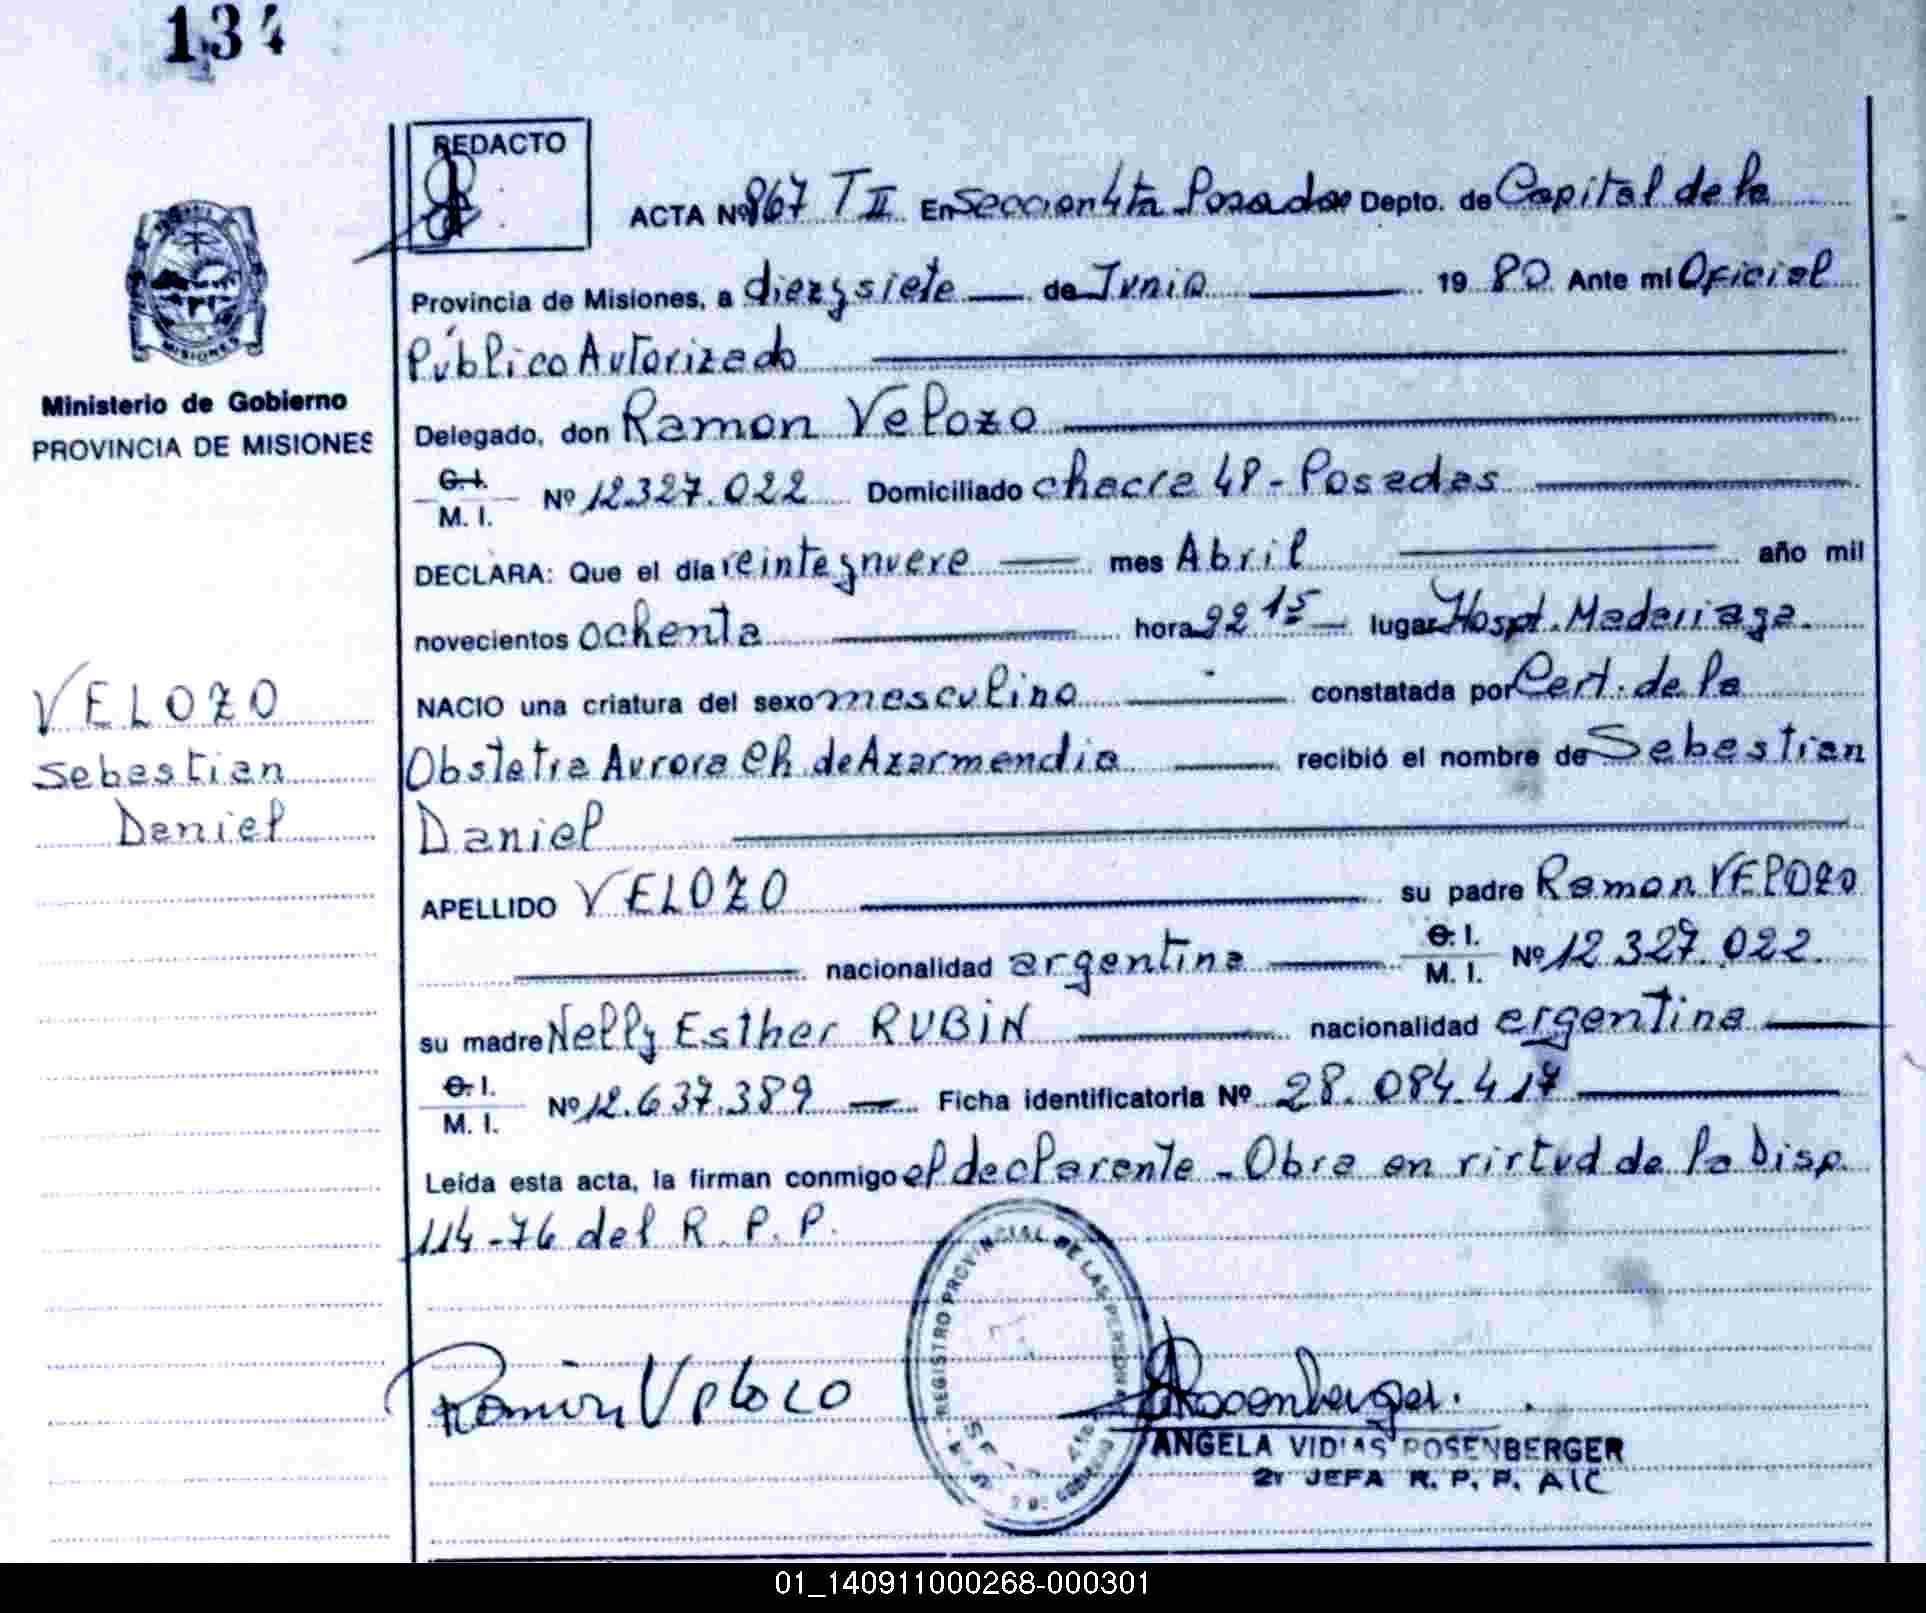 134
REDACTO
ACTA Nº 867 T II En Seccion 4ta Posadas Depto. de Capital de la
Provincia de Misiones, a diezysiete de Junio 19 80 Ante mi Oficial
Público Autorizado
Delegado, don Ramon Velozo
C. I.
M. I. Nº 12.327.022 Domiciliado chacra 48 - Posadas
DECLARA: Que el día veinteynueve mes Abril año mil
novecientos ochenta hora 22 15 lugar Hospt. Madariaga.
NACIO una criatura del sexo masculino constatada por Cert. de la
Obstetra Aurora Ch. de Azarmendia recibió el nombre de Sebastian
Daniel
APELLIDO VELOZO su padre Ramon VELOZO
nacionalidad argentina C. I.
M. I. Nº 12.327.022.
su madre Nelly Esther RUBIN nacionalidad argentina
C. I.
M. I. Nº 12.637.389 Ficha identificatoria Nº 28.084.417
Leída esta acta, la firman conmigo el declarante - Obra en virtud de la Disp.
114-76 del R. P. P.
Ministerio de Gobierno
PROVINCIA DE MISIONES
MISIONES
VELOZO
Sebastian
Daniel
Ramón Velozo
REGISTRO PROVINCIAL DE LAS PERSONAS
Rosenberger
ANGELA VIDIAS ROSENBERGER
2ª JEFA R. P. P. A/C
01_140911000268-000301